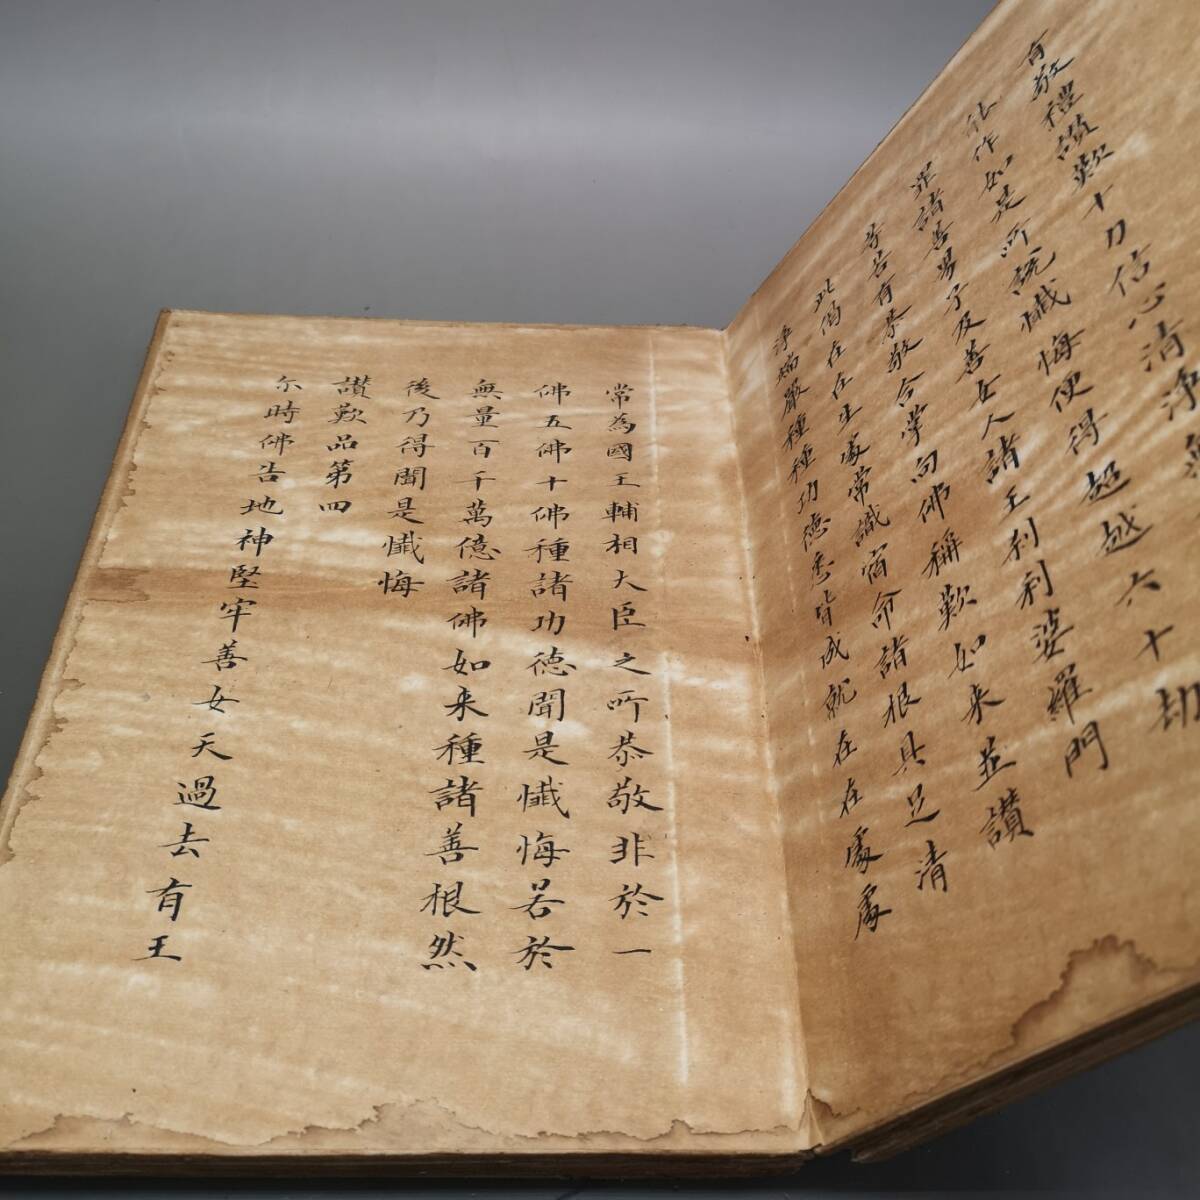 有敬禮讃歎十力信心清淨無
能作如是所說懺悔便得超越六十劫
罪諸善男子及善女人諸王刹利婆羅門
等若有恭敬合掌向佛稱歎如来並讃
此偈在在生處常識宿命諸根具足清
淨端嚴種種功徳悉皆成就在在處處
常為國王輔相大臣之所恭敬非於一
佛五佛十佛種諸功徳聞是懺悔若於
無量百千萬億諸佛如来種諸善根然
後乃得聞是懺悔
讃歎品第四
尒時佛告地神堅牢善女天過去有王